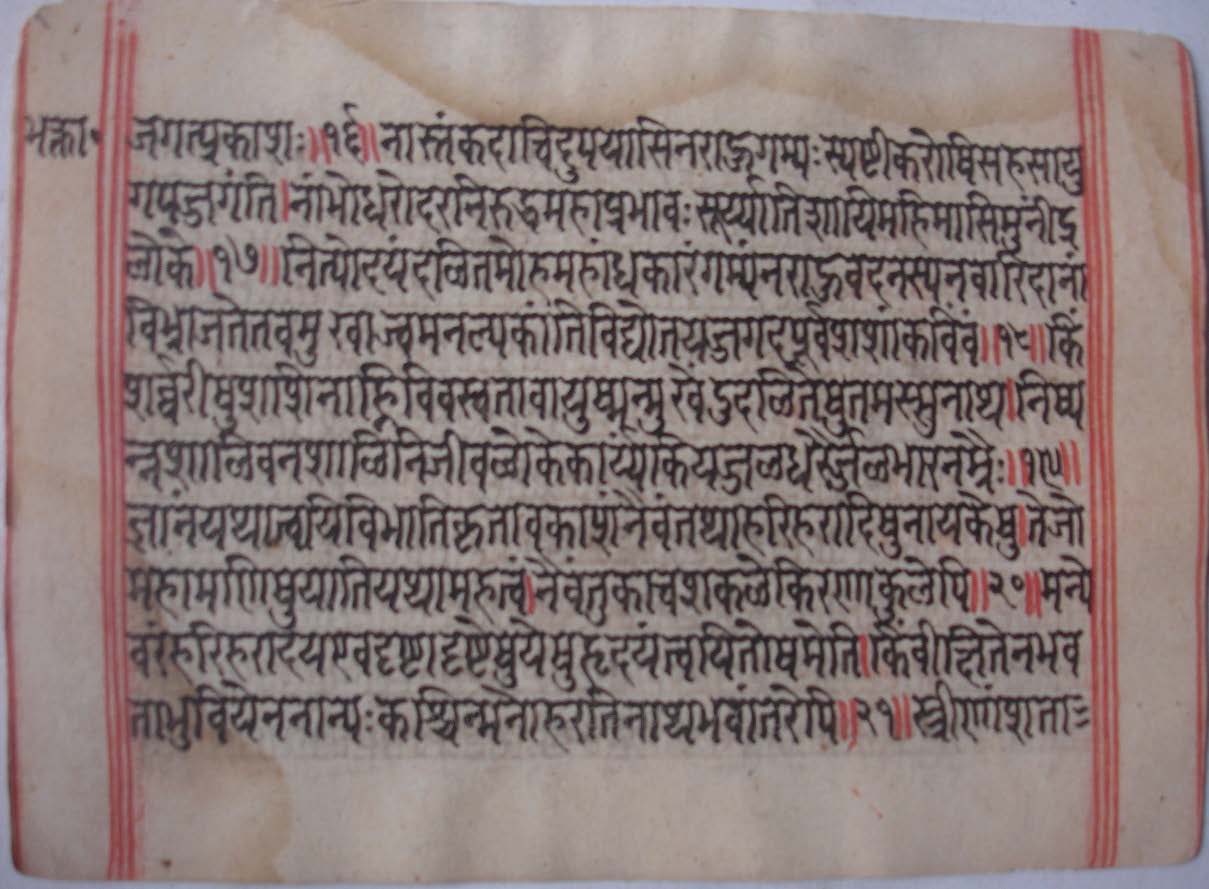 भक्ता॰
जगत्प्रकाशः॥१६॥नास्तंकदाचिदुपयासिनराहुगम्यःस्पष्टीकरोषिसहसायु
गपज्जगंति।नांभोधरोदरनिरुद्धमहाप्रभावःसूर्य्यातिशायिमहिमासिमुनींद्र
लोके॥१७॥नित्योदयंदलितमोहमहांधकारंगम्यंनराहुवदनस्यनवारिदानां
विभ्राजतेतवमुखाज्वमनल्पकांतिविद्योतयज्जगदपूर्वशशांकविंवं॥१८॥किं
शर्व्वरीषुशशिनाह्निविवस्वतावायुष्मन्मुखेंदुदलितेषुतमस्सुनाथ।निष्प
न्नशालिवनशालिनिजीवलोकेकार्य्यंकियज्जलधरैर्जलभारनम्रैः॥१९॥
ज्ञानंयथात्वयिविभातिकृतावकाशंनैवंतथाहरिहरादिषुनायकेषु।तेजो
महामणिषुयातियथामहत्वंनैवंतुकाचशकलेकिरणाकुलेपि॥२०॥मन्ये
वरंहरिहरादयएवदृष्टादृष्टेषुयेषुहृदयंत्वयितोषमेति।किंवीक्षितेनभव
ताभुवियेननान्यःकश्चिन्मनोहरतिनाथभवांतरेपि॥२१॥स्त्रीणांशता=